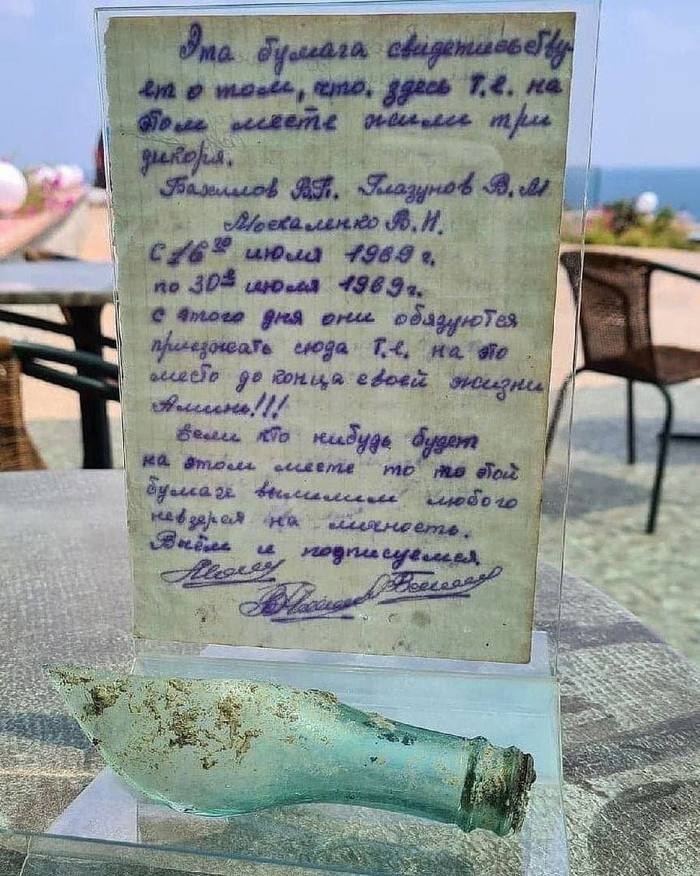 Эта бумага свидетисьству
ет о том, что. здесь т.е. на
этом месте жили три
дикоря.
Бахилов В.П. Глазунов В.М
Москаленко В.И.
С 16го июля 1969 г.
по 30е июля 1969г.
с этого дня они обязуются
приезжать сюда т.е. на это
место до конца своей жизни
Аминь!!!
Если кто нибудь будет
на этом месте то по этой
бумаге выпишим любого
невзерая на личность.
В чём и подписуемся.